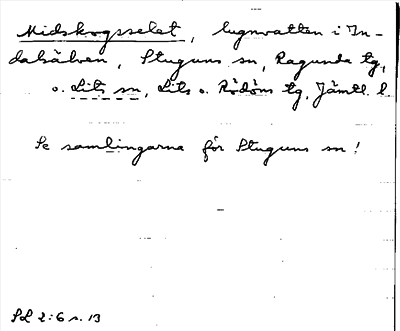 Midskogsselet, lugnvatten i In-
dalsälven, Stuguns sn, Ragunda tg,
o. Lits sn, Lits o. Rödöns tg, Jämtl. l.
Se samlingarna för Stuguns sn!
SL 2:6 s. 13